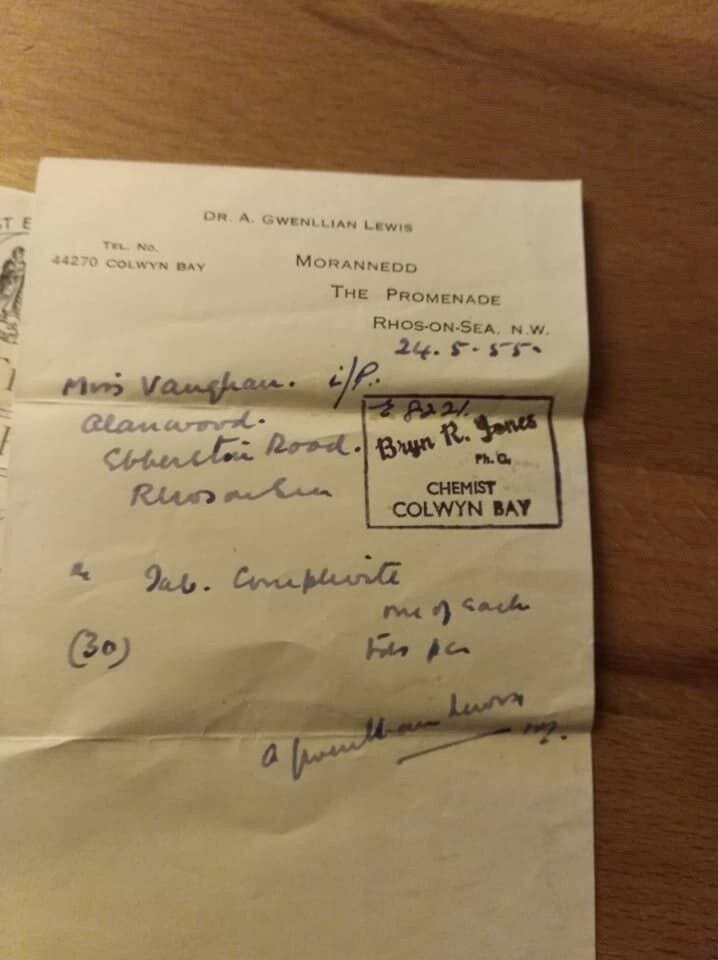 DR. A. GWENLLIAN LEWIS
TEL. NO.
44270 COLWYN BAY
MORANNEDD
THE PROMENADE
RHOS-ON-SEA, N.W.
24.5.55.
Miss Vaughan. i/P.
Alanwood.
Ebberston Road.
Rhos on Sea
E 8221
Bryn R. Jones
Ph. C.
CHEMIST
COLWYN BAY
Tab. Complivite
one of each
(30)
tds pc
A Gwenllian Lewis